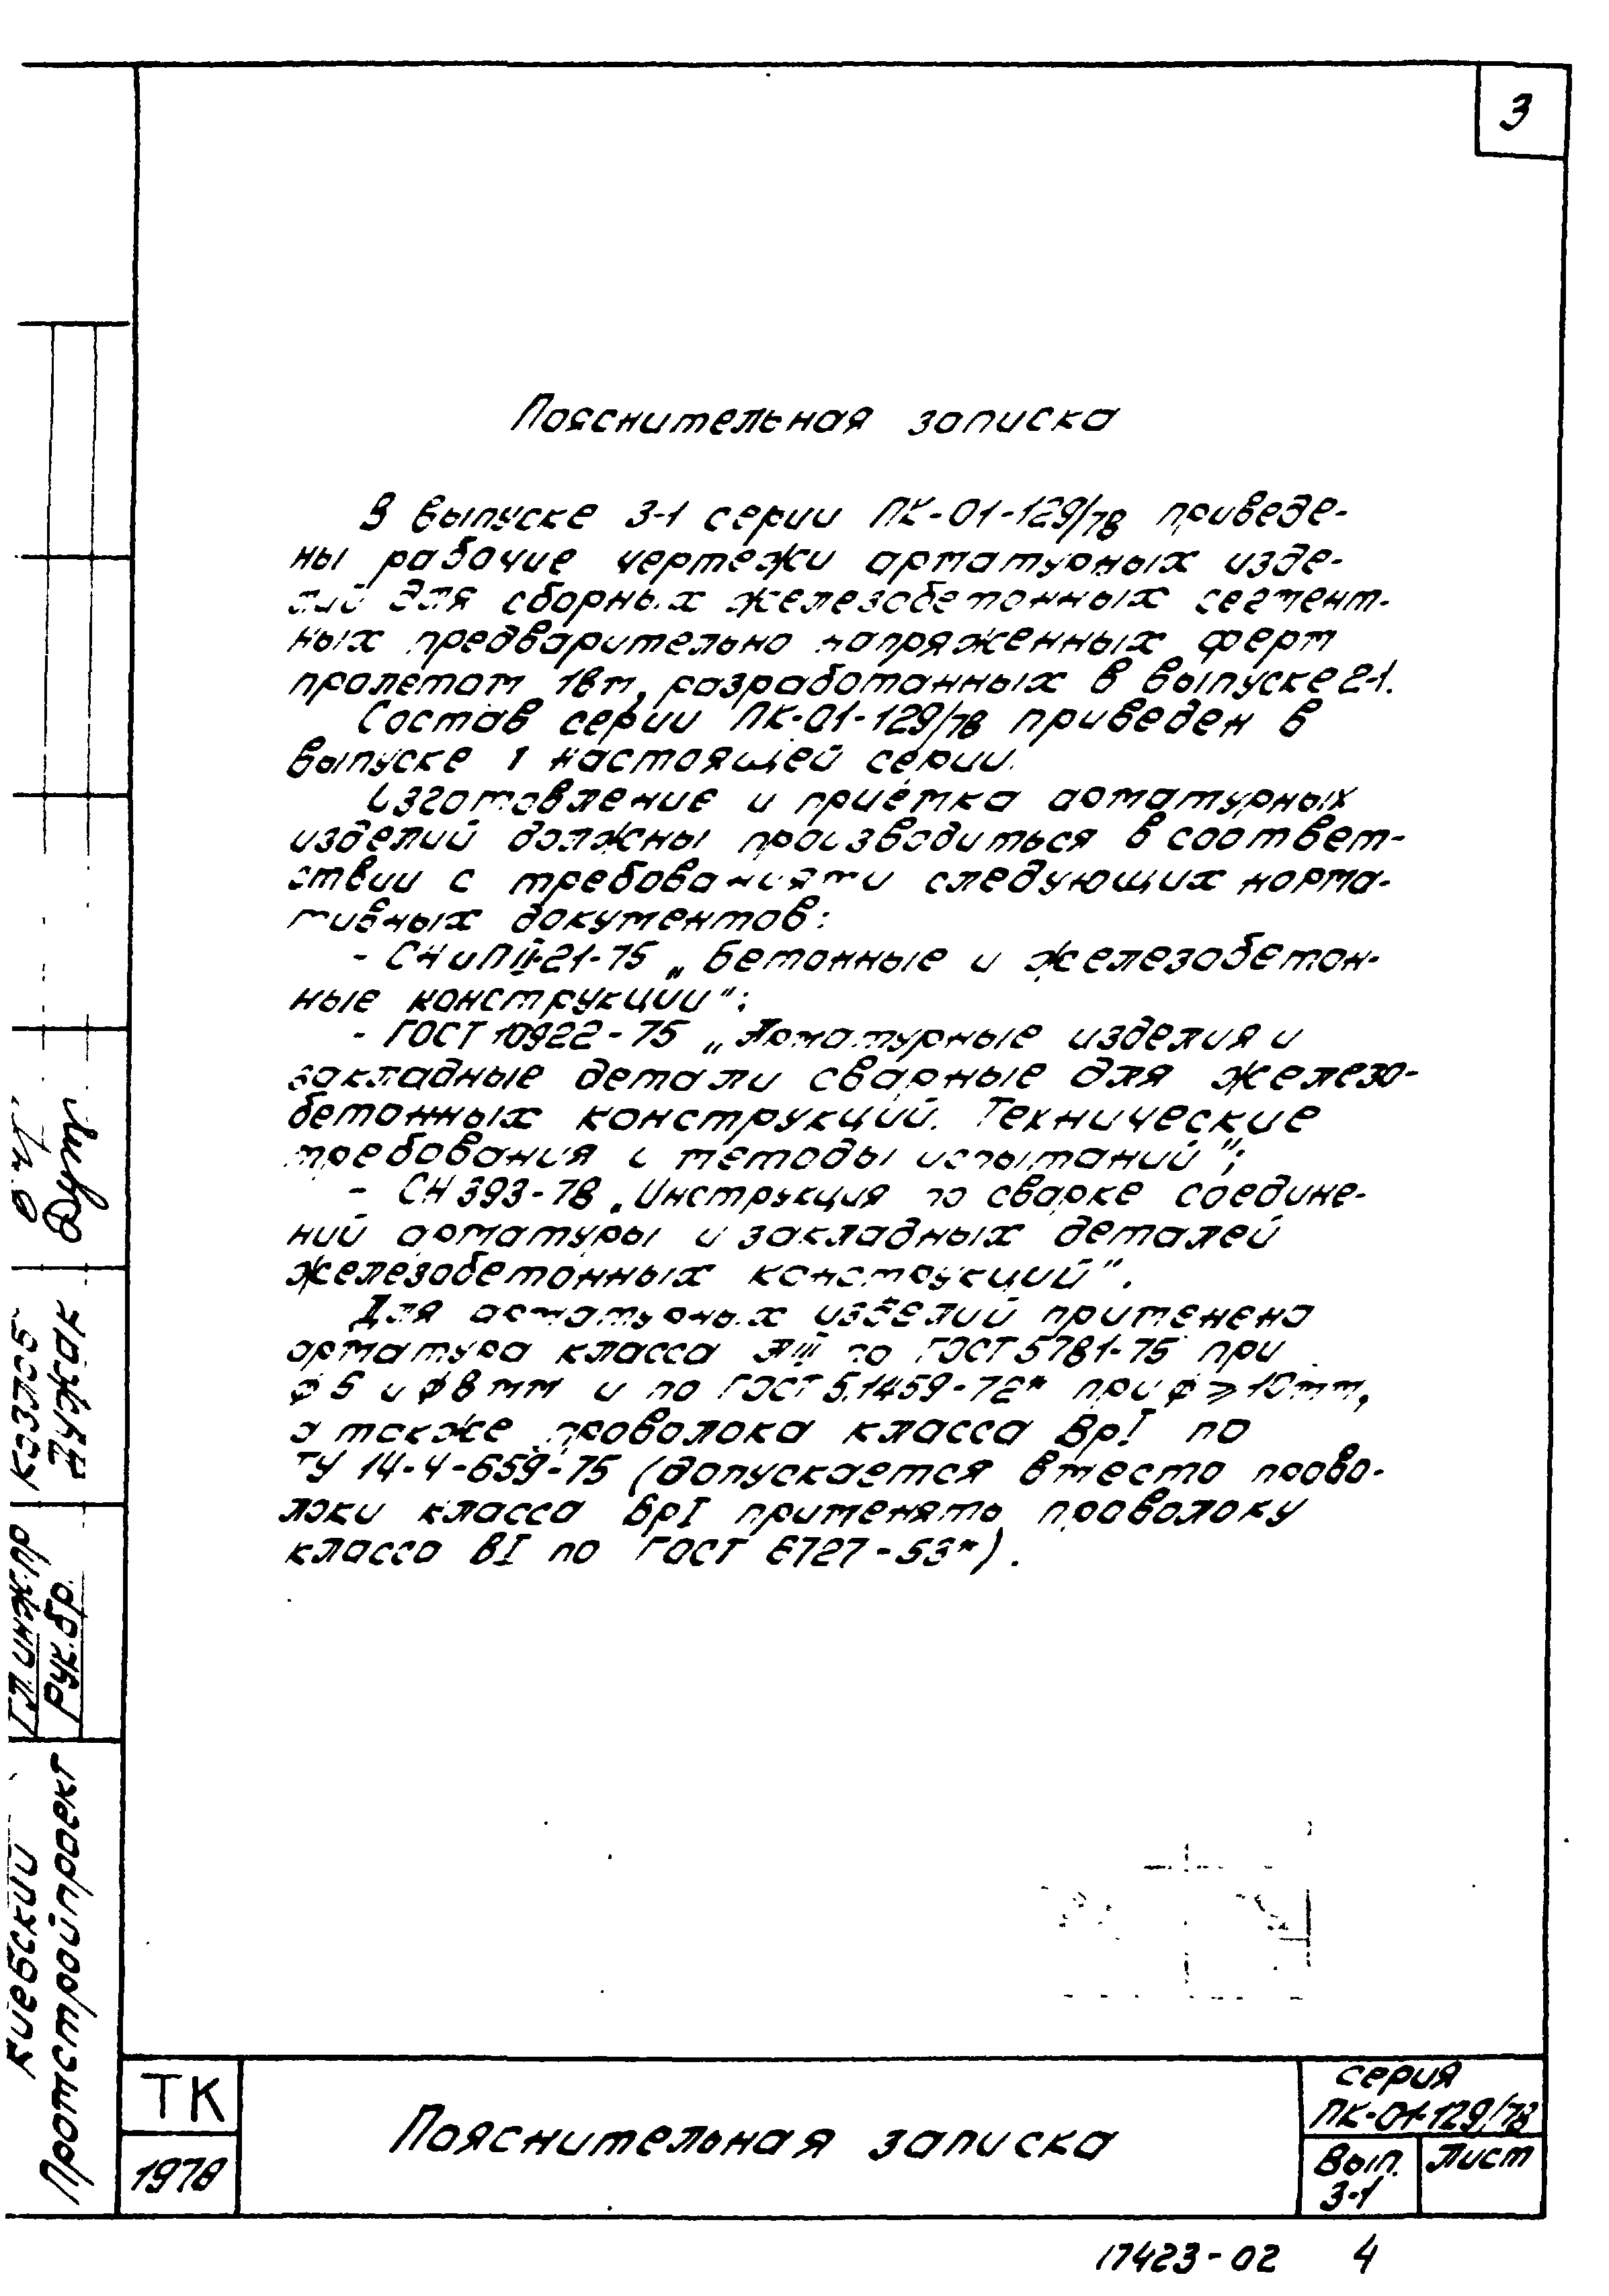 3
Пояснительная записка
В выпуске 3-1 серии ПК-01-129/78 приведе-
ны рабочие чертежи арматурных изде-
лий для сборных железобетонных сегмент-
ных предварительно напряженных ферм
пролетом 18м, разработанных в выпуске 2-1.
Состав серии ПК-01-129/78 приведен в
выпуске 1 настоящей серии.
Изготовление и приёмка арматурных
изделий должны производиться в соответ-
ствии с требованиями следующих норма-
тивных документов:
- СНиП II-21-75 „Бетонные и железобетон-
ные конструкции";
- ГОСТ 10922-75 „Арматурные изделия и
закладные детали сварные для железо-
бетонных конструкций. Технические
требования и методы испытаний";
- СН 393-78 „Инструкция по сварке соедине-
ний арматуры и закладных деталей
железобетонных конструкций".
Для арматурных изделий применена
арматура класса АIII по ГОСТ 5781-75 при
ф 6 и ф 8 мм и по ГОСТ 5.1459-72* при ф ⩾ 10мм,
а также проволока класса ВрI по
ТУ 14-4-659-75 (допускается вместо прово-
локи класса ВрI применять проволоку
класса ВI по ГОСТ 6727-53*).
Гл. инж. пр Козлов
Рук. бр. Лужак
Киевский
Промстройпроект
ТК
1978
Пояснительная записка
серия
ПК-01-129/78
Вып.
3-1
Лист
17423-02 4